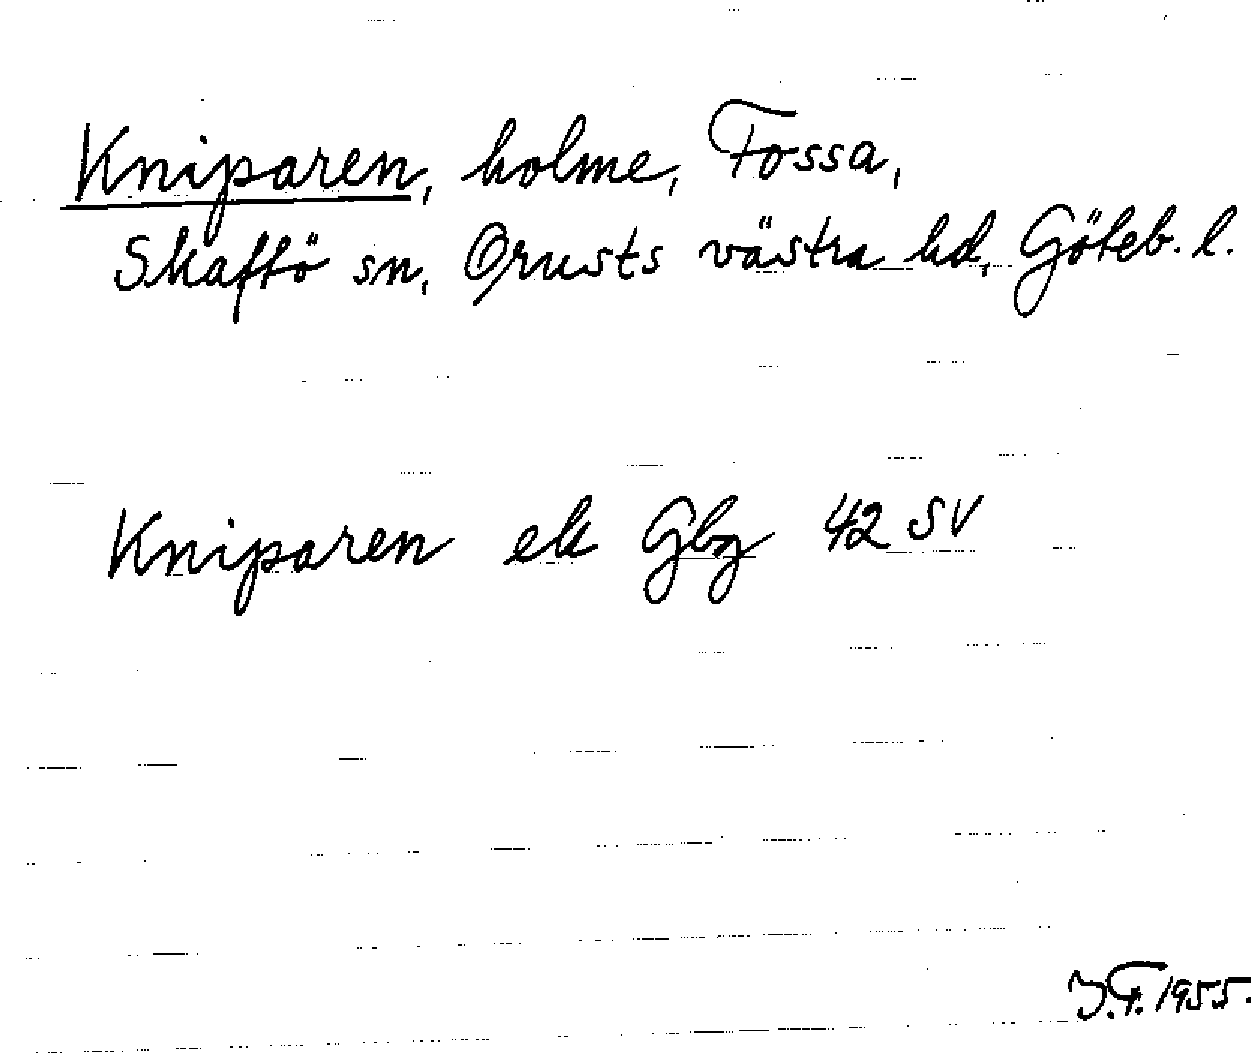 Kniparen, holme, Fossa,
Skaftö sn, Orusts västra hd, Göteb. l.
Kniparen ek Gbg 42 SV
J.F. 1955.